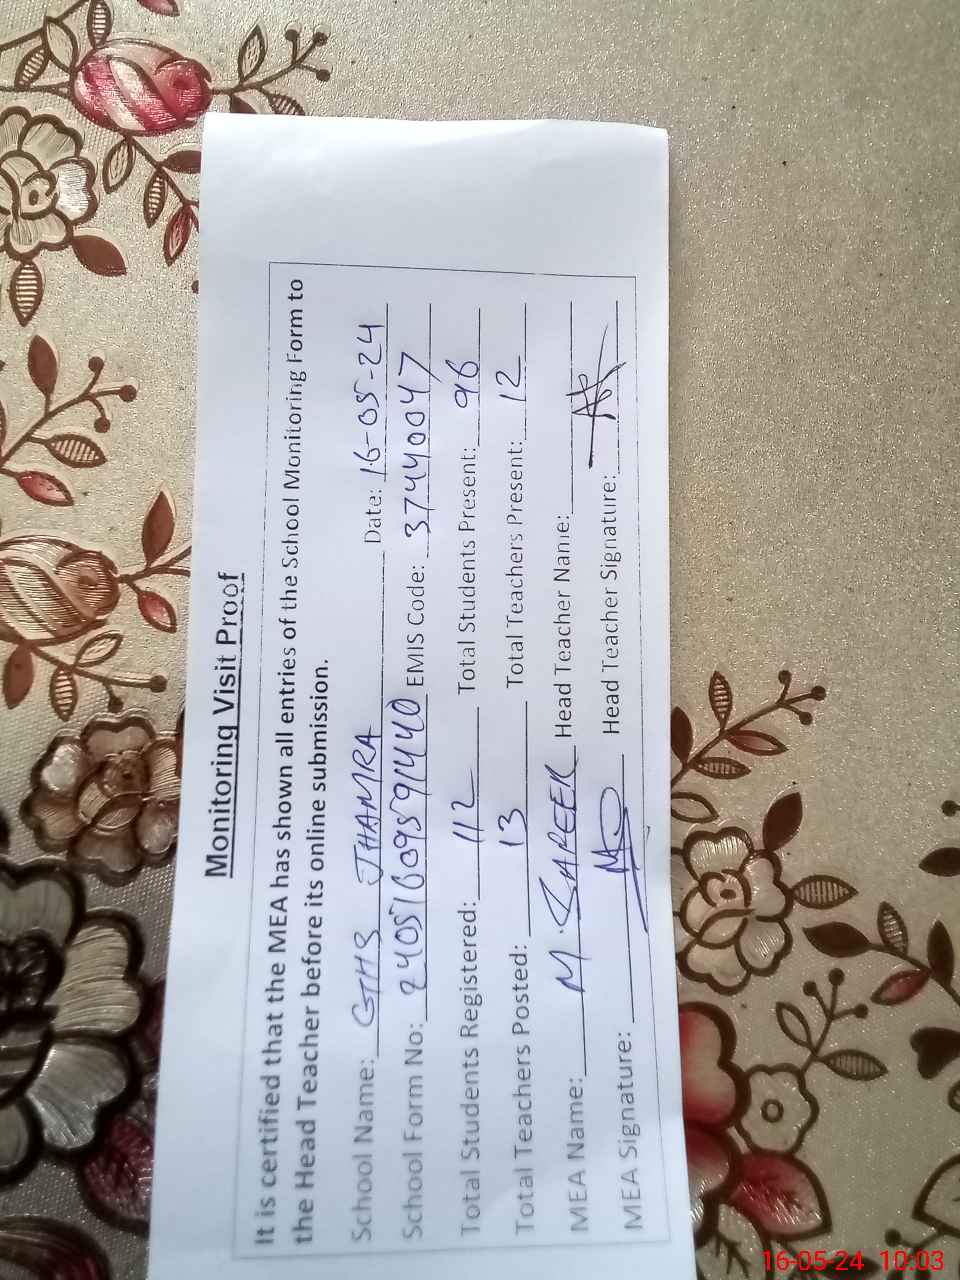 Monitoring Visit Proof
It is certified that the MEA has shown all entries of the School Monitoring Form to
the Head Teacher before its online submission.
School Name: GHS JHAMRA Date: 16-05-24
School Form No: 24051609591440 EMIS Code: 37440047
Total Students Registered: 112 Total Students Present: 96
Total Teachers Posted: 13 Total Teachers Present: 12
MEA Name: M. Head Teacher Name:
MEA Signature: Head Teacher Signature:
16-05-24 10:03